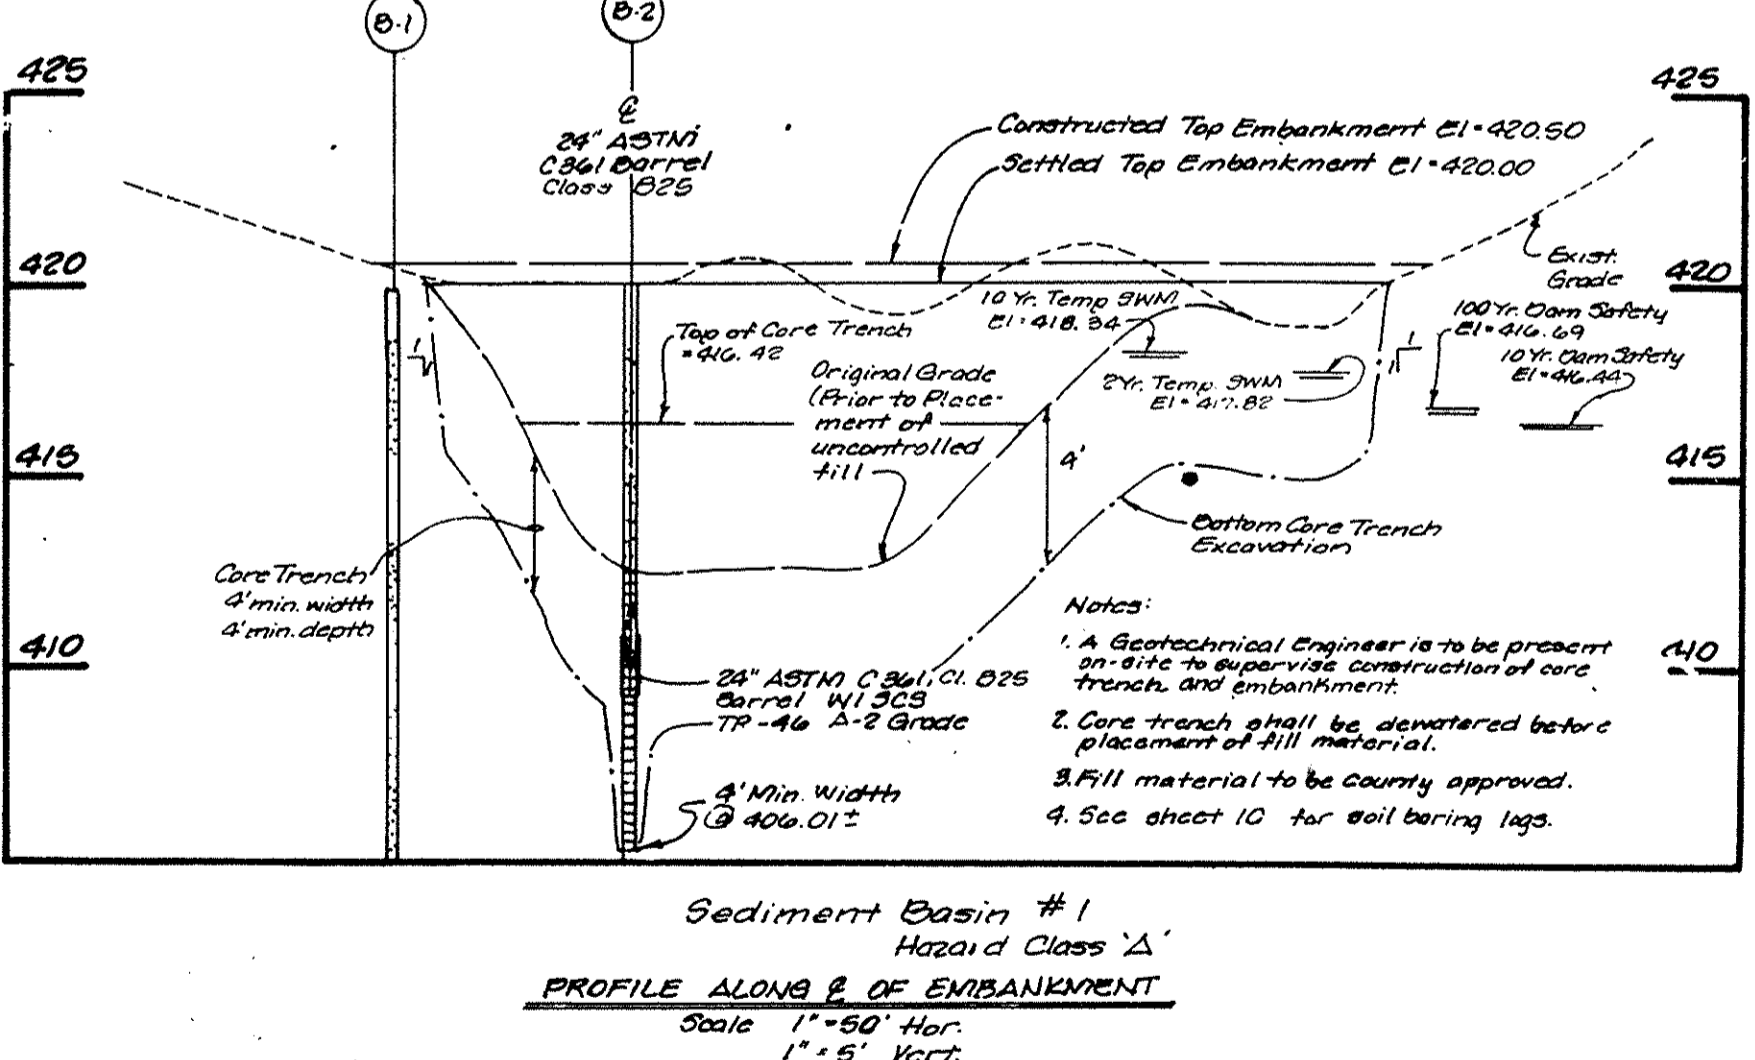 B-1
B-2
425
425
℄
24" ASTM
C361 Barrel
Class B25
Constructed Top Embankment El=420.50
Settled Top Embankment El=420.00
420
420
Exist.
Grade
10 Yr. Temp SWM
El=418.34
100 Yr. Dam Safety
El=416.69
10 Yr. Dam Safety
El=416.44
Top of Core Trench
=416.42
1
1
1
Original Grade
(Prior to Place-
ment of
uncontrolled
fill
2 Yr. Temp. SWM
El=417.82
415
415
4'
Bottom Core Trench
Excavation
Core Trench
4' min. width
4' min. depth
410
410
24" ASTM C361, Cl. B25
Barrel W/ SCS
TR-46 A-2 Grade
4' Min. Width
@ 406.01±
Notes:
1. A Geotechnical Engineer is to be present
on-site to supervise construction of core
trench and embankment.
2. Core trench shall be dewatered before
placement of fill material.
3. Fill material to be county approved.
4. See sheet 10 for soil boring logs.
Sediment Basin #1
Hazard Class 'A'
PROFILE ALONG ℄ OF EMBANKMENT
Scale 1"=50' Hor.
1"=5' Vert.